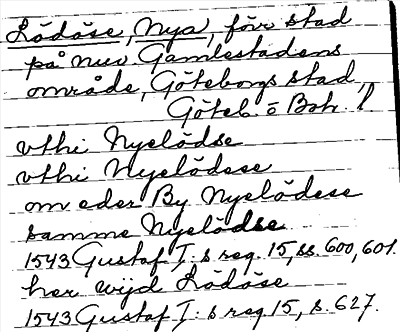 Lödöse, Nya, förr stad
på nuv Gamlestadens
område, Göteborgs stad,
Göteb. o Boh. l
vthi Nyelödse
vthi Nyelödese
om eder By Nyelödese
samme Nyelödse
1543 Gustaf I:s reg. 15, ss. 600, 601.
her wijd Lödöse
1543 Gustaf I:s reg. 15, s. 627.